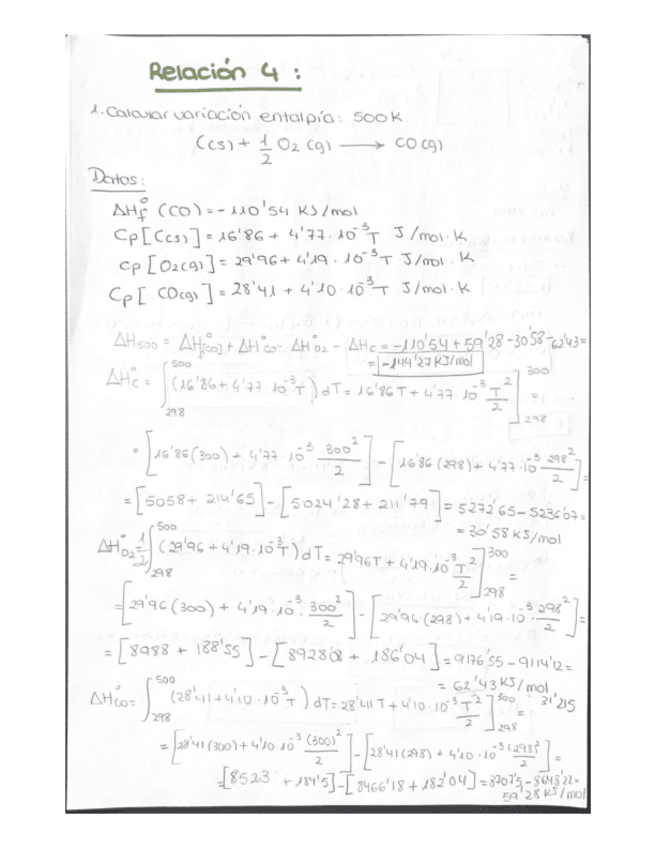 Relación 4 :
1. Calcular variación entalpía: 500K
C(s) + 1/2 O2 (g) → CO (g)
Datos:
ΔHf° (CO) = -110'54 KJ/mol
Cp [C(s)] = 16'86 + 4'77 · 10^-3 T J/mol·K
Cp [O2(g)] = 29'96 + 4'19 · 10^-3 T J/mol · K
Cp [CO(g)] = 28'41 + 4'10 · 10^-3 T J/mol·K
ΔH500 = ΔHf°[CO] + ΔH°CO - ΔH°O2 - ΔHC = -110'54 + 59'28 - 30'58 - 62'43 =
= -144'27 KJ/mol
ΔH°C = ∫298^500 (16'86 + 4'77 · 10^-3 T) dT = 16'86 T + 4'77 · 10^-3 T^2/2 ]298^300 =
= [16'86 (300) + 4'77 · 10^-3 300^2/2] - [16'86 (298) + 4'77 · 10^-3 298^2/2] =
= [5058 + 214'65] - [5024'28 + 211'79] = 5272'65 - 5236'07 =
= 30'58 KJ/mol
ΔH°O2 = 1/2 ∫298^500 (29'96 + 4'19 · 10^-3 T) dT = 29'96T + 4'19 · 10^-3 T^2/2 ]298^300 =
= [29'96 (300) + 4'19 · 10^-3 · 300^2/2] - [29'96 (298) + 4'19 · 10^-3 298^2/2] =
= [8988 + 188'55] - [8928'08 + 186'04] = 9176'55 - 9114'12 =
= 62'43 KJ/mol
31'215
ΔH°CO = ∫298^500 (28'41 + 4'10 · 10^-3 T) dT = 28'41 T + 4'10 · 10^-3 T^2/2 ]298^300 =
= [28'41 (300) + 4'10 · 10^-3 (300)^2/2] - [28'41 (298) + 4'10 · 10^-3 (298)^2/2] =
= [8523 + 184'5] - [8466'18 + 182'04] = 8707'5 - 8648'22 =
59'28 KJ/mol